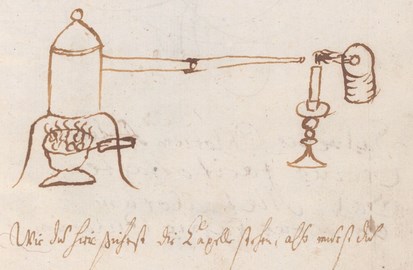 Wie du hie sichest die Capelle stehen, also mustu